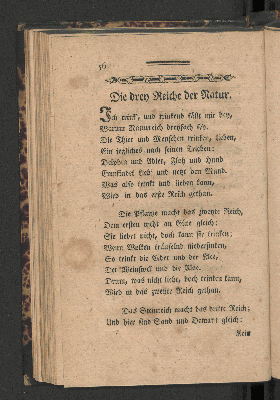 56
Die drey Reiche der Natur.
Ich trink', und trinkend fällt mir bey,
Warum Naturreich dreyfach sey.
Die Thier' und Menschen trinken, lieben,
Ein jegliches nach seinen Trieben:
Delphin und Adler, Floh und Hund
Empfindet Lieb' und netzt den Mund.
Was also trinkt und lieben kann,
Wird in das erste Reich gethan.
Die Pflanze macht das zweyte Reich,
Dem ersten nicht an Güte gleich:
Sie liebet nicht, doch kann sie trinken;
Wenn Wolken träufelnd niedersinken,
So trinkt die Ceder und der Klee,
Der Weinstock und die Aloe.
Drum, was nicht liebt, doch trinken kann,
Wird in das zweyte Reich gethan.
Das Steinreich macht das dritte Reich;
Und hier sind Sand und Demant gleich:
Kein